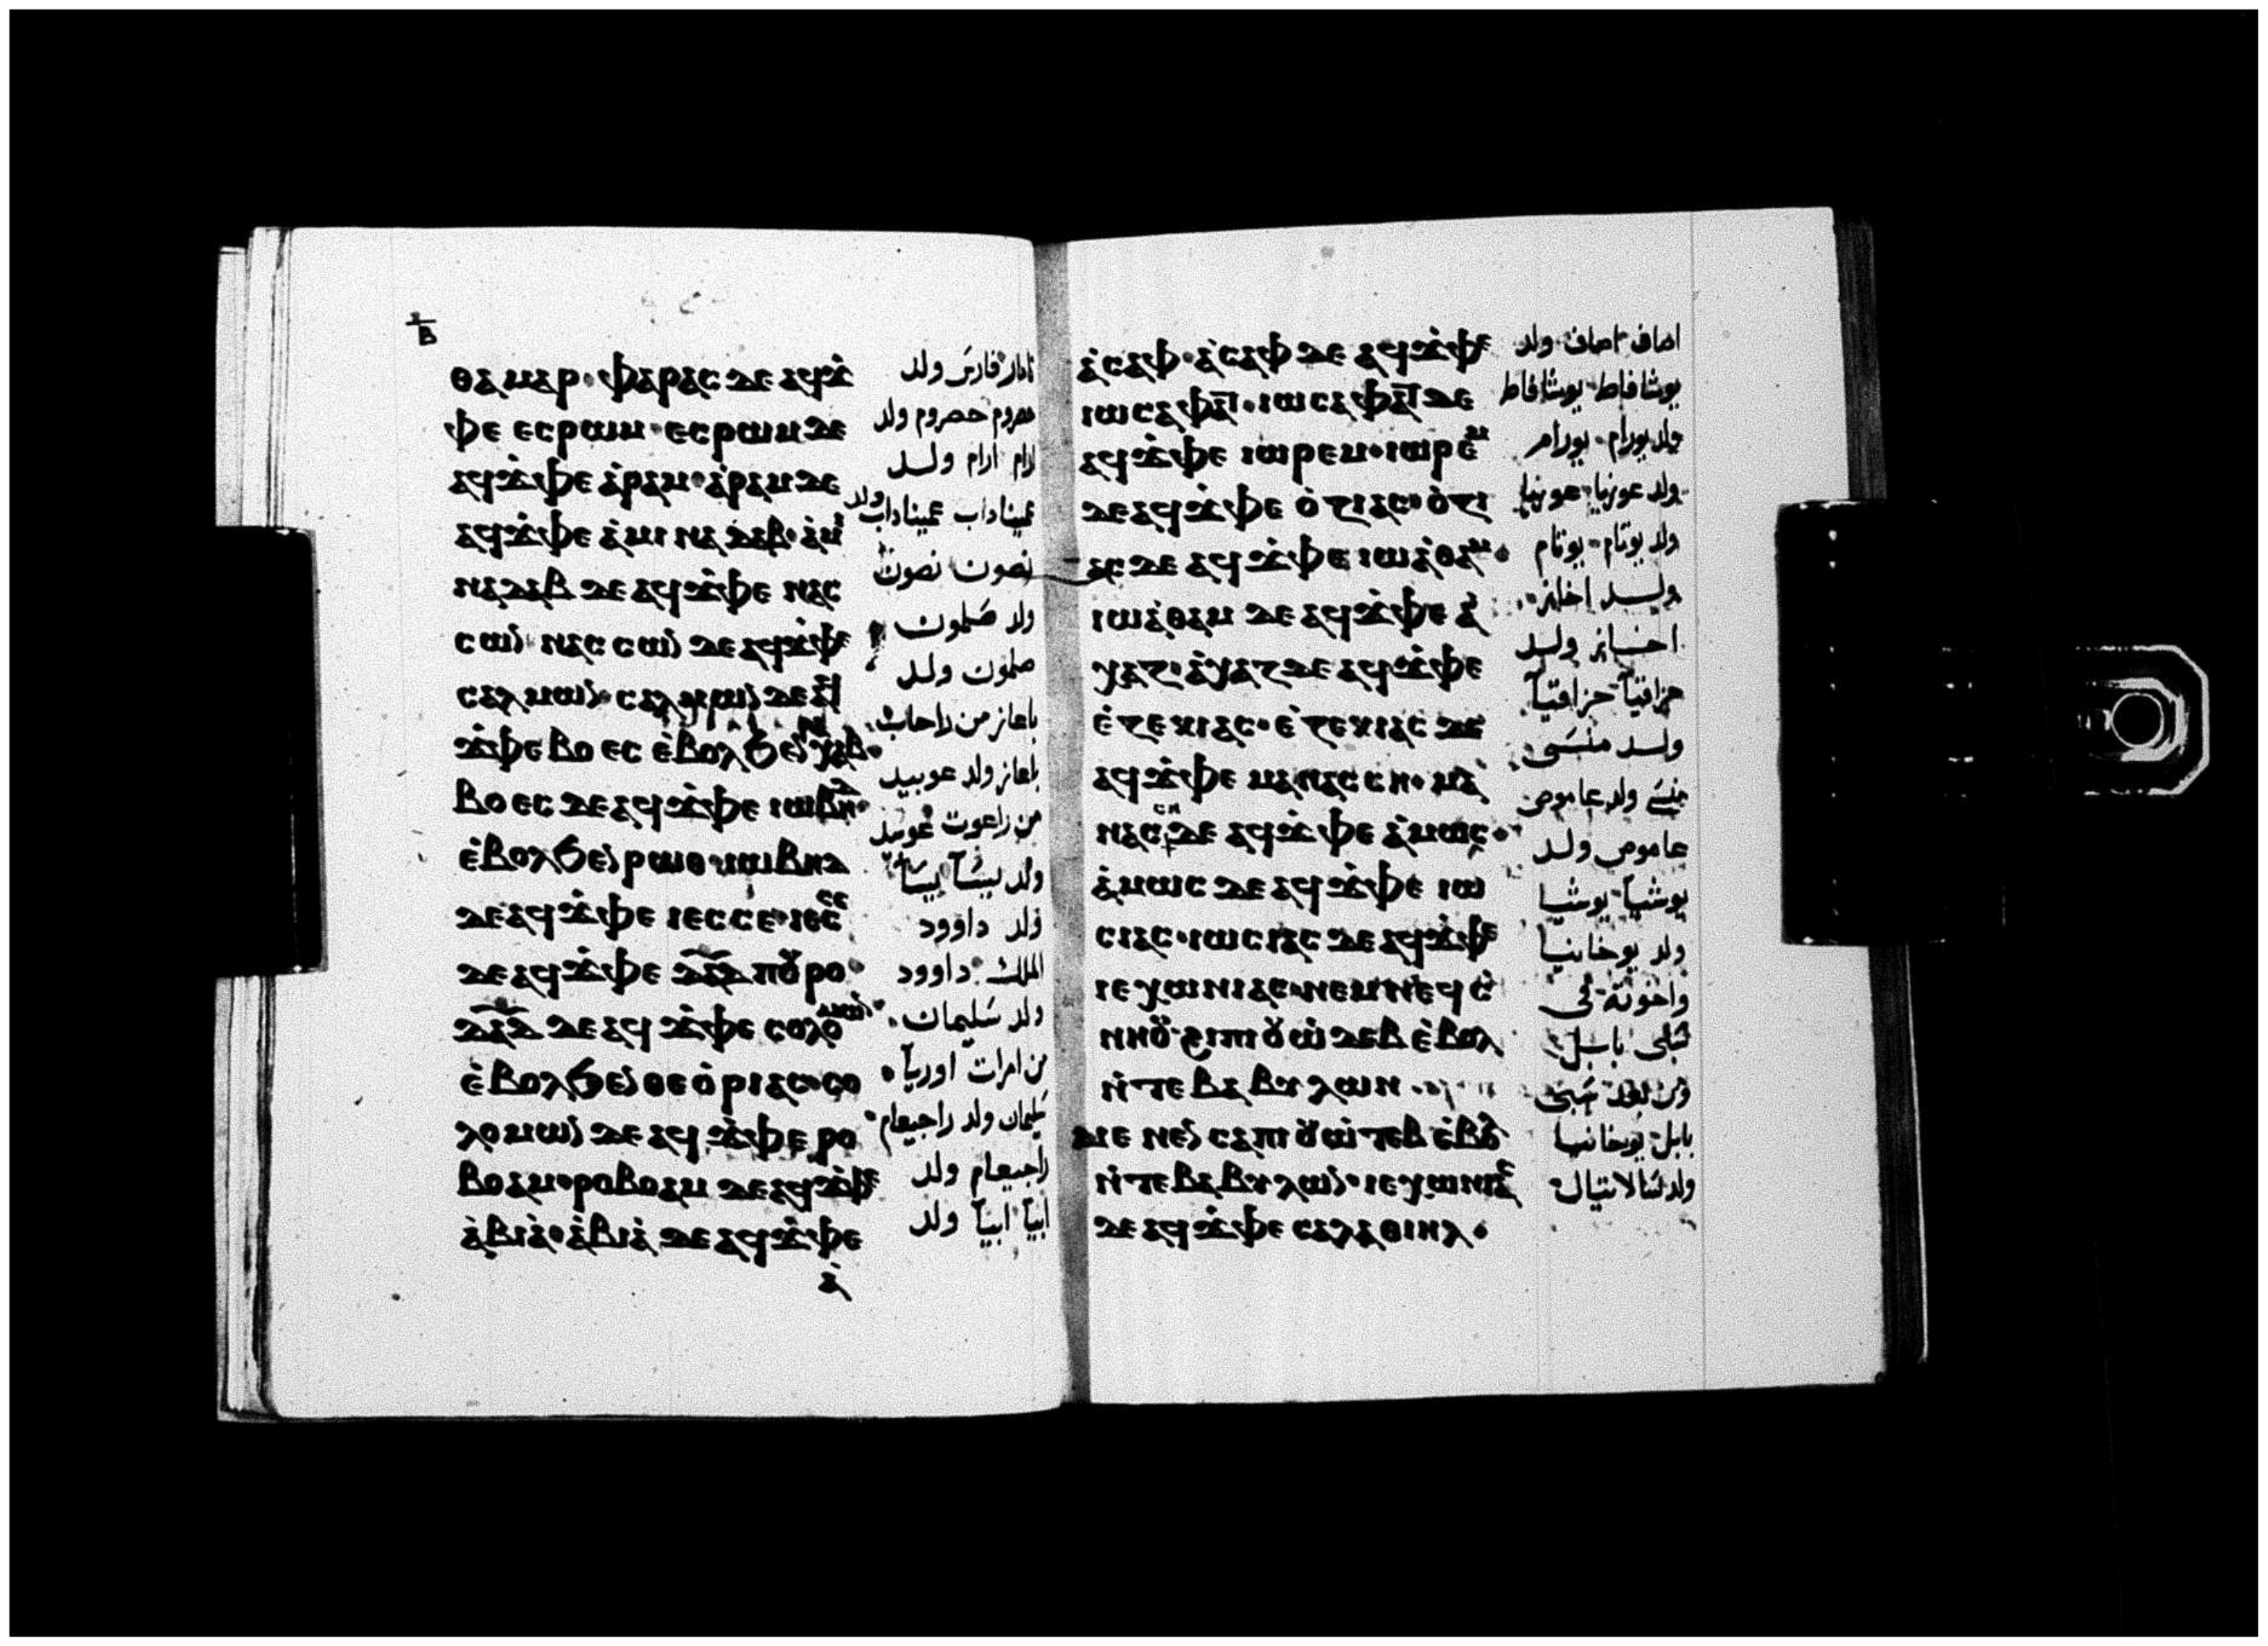 ⲃ
ⲑⲁⲙⲁⲣ· ⲫⲁⲣⲉⲥ ⲇⲉ ⲁϥϫ̀
ⲫⲉ ⲉⲥⲣⲱⲙ· ⲉⲥⲣⲱⲙ ⲇⲉ
ⲁϥϫ̀ⲫⲉ ⲁ̀ⲣⲁⲙ· ⲁ̀ⲣⲁⲙ ⲇⲉ
ⲁϥϫ̀ⲫⲉ ⲁ̀ⲙⲓⲛⲁⲇⲁⲃ· ⲁ̀ⲙⲓ
ⲛⲁⲇⲁⲃ ⲇⲉ ⲁϥϫ̀ⲫⲉ ⲛⲁⲥ
ⲥⲱⲛ ⲛⲁⲥⲥⲱⲛ ⲇⲉ ⲁϥϫ̀ⲫⲉ
ⲥⲁⲗⲙⲱⲛ· ⲥⲁⲗⲙⲱⲛ ⲇⲉ ⲁϥ
ϫ̀ⲫⲉ ⲃⲟⲉⲥ ⲉ̀ⲃⲟⲗϧⲉⲛ
ⲃⲟⲉⲥ ⲇⲉ ⲁϥϫ̀ⲫⲉ ⲓⲱⲃⲏⲇ·
ⲉ̀ⲃⲟⲗϧⲉⲛ ⲣⲱⲑ· ⲓⲱⲃⲏⲇ
ⲇⲉ ⲁϥϫ̀ⲫⲉ ⲓⲉⲥⲥⲉ· ⲓⲉⲥⲥⲉ
ⲇⲉ ⲁϥϫ̀ⲫⲉ ⲇⲁⲇ ⲡⲟⲩⲣⲟ·
ⲇⲁⲇ ⲇⲉ ⲁϥϫ̀ⲫⲉ ⲥⲟⲗⲟⲙⲱⲛ·
ⲉ̀ⲃⲟⲗϧⲉⲛ ⲑⲉⲟ̀ⲣⲓⲁⲥ· ⲥⲟ
ⲗⲟⲙⲱⲛ ⲇⲉ ⲁϥϫ̀ⲫⲉ ⲣⲟ
ⲃⲟⲁⲙ· ⲣⲟⲃⲟⲁⲙ ⲇⲉ ⲁϥϫ̀ⲫⲉ
ⲁ̀ⲃⲓⲁ̀· ⲁ̀ⲃⲓⲁ̀ ⲇⲉ ⲁϥϫ̀ⲫⲉ
ⲁ̀
تامار فارس ولد
حصروم حصروم ولد
ارام ارام ولد
عميناداب عميناداب ولد
نصون نصون
ولد صلمون
صلمون ولد
باعاز من راحاب
باعاز ولد عوبيد
من راعوت عوبيد
ولد يسا يسا
ولد داوود
الملك داوود
ولد سليمان
من امرات اوريا
سليمان ولد راجبعام
راجبعام ولد
ابيا ابيا ولد
ⲁ̀ⲥⲁⲫ· ⲁ̀ⲥⲁⲫ ⲇⲉ ⲁϥϫ̀ⲫⲉ
ⲓⲱⲥⲁⲫⲁⲧ· ⲓⲱⲥⲁⲫⲁⲧ ⲇⲉ
ⲁϥϫ̀ⲫⲉ ⲓⲱⲣⲉⲙ· ⲓⲱⲣⲉⲙ
ⲇⲉ ⲁϥϫ̀ⲫⲉ ⲟ̀ⲍⲓⲁⲥ· ⲟ̀ⲍⲓ
ⲁⲥ ⲇⲉ ⲁϥϫ̀ⲫⲉ ⲓⲱⲁ̀ⲑⲁⲙ·
ⲓⲱⲁ̀ⲑⲁⲙ ⲇⲉ ⲁϥϫ̀ⲫⲉ ⲁ̀
ⲭⲁⲍ· ⲁ̀ⲭⲁⲍ ⲇⲉ ⲁϥϫ̀ⲫⲉ
ⲉ̀ⲍⲉⲕⲓⲁⲥ· ⲉ̀ⲍⲉⲕⲓⲁⲥ ⲇⲉ
ⲁϥϫ̀ⲫⲉ ⲙⲁⲛⲁⲥⲥⲏ· ⲙⲁ
ⲛⲁⲥⲥⲏ ⲇⲉ ⲁϥϫ̀ⲫⲉ ⲁ̀ⲙⲱⲥ·
ⲁ̀ⲙⲱⲥ ⲇⲉ ⲁϥϫ̀ⲫⲉ ⲓⲱ
ⲥⲓⲁⲥ· ⲓⲱⲥⲓⲁⲥ ⲇⲉ ⲁϥϫ̀ⲫⲉ
ⲓⲉⲭⲱⲛⲓⲁⲥ· ⲛⲉⲙ ⲛⲉϥⲥ̀
ⲛⲏⲟⲩ· ϩⲓ ⲡⲓⲟⲩⲱ̀ⲧⲉⲃ ⲉ̀ⲃⲟⲗ
ⲛ̀ⲧⲉ ⲃⲁⲃⲩⲗⲱⲛ·
ⲙⲉⲛⲉⲛⲥⲁ ⲡⲓⲟⲩⲱ̀ⲧⲉⲃ ⲉ̀ⲃⲟⲗ
ⲛ̀ⲧⲉ ⲃⲁⲃⲩⲗⲱⲛ· ⲓⲉⲭⲱⲛⲓⲁⲥ
ⲇⲉ ⲁϥϫ̀ⲫⲉ ⲥⲁⲗⲁⲑⲓⲏⲗ·
اصاف اصاف ولد
يوشافاط يوشافاط
ولد يورام يورام
ولد عوزيا عوزيا
ولد يوتام يوتام
ولد اخاز
احاز ولد
حزاقيا حزاقيا
ولد منسى
منسى ولد عاموص
عاموص ولد
يوشيا يوشيا
ولد يوخانيا
واخوته في
سبي بابل
ومن بعد سبي
بابل يوخانيا
ولد شالاتيال